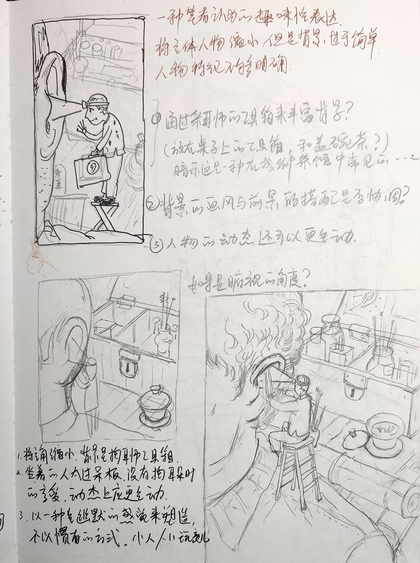 一种
的趣味性表达
将主体人物缩小,但是背景过于简单
人物特纪不够明确
①通过采耳师的工具箱来丰富背景?
(放在桌子上的工具箱,和盖碗茶?)
暗示这是一种在成都茶馆中常见的...
②背景的画风与前景的搭配是否协调?
③人物的动态还可以更生动.
如果是俯视的角度?
1.将 缩小,背景是掏耳师工具箱.
2.坐着的人太过呆板,没有掏耳朵时
的享受,动态上应更生动.
3.以一种生幽默的 来塑造,
不以惯有的方式,小人/小玩意儿